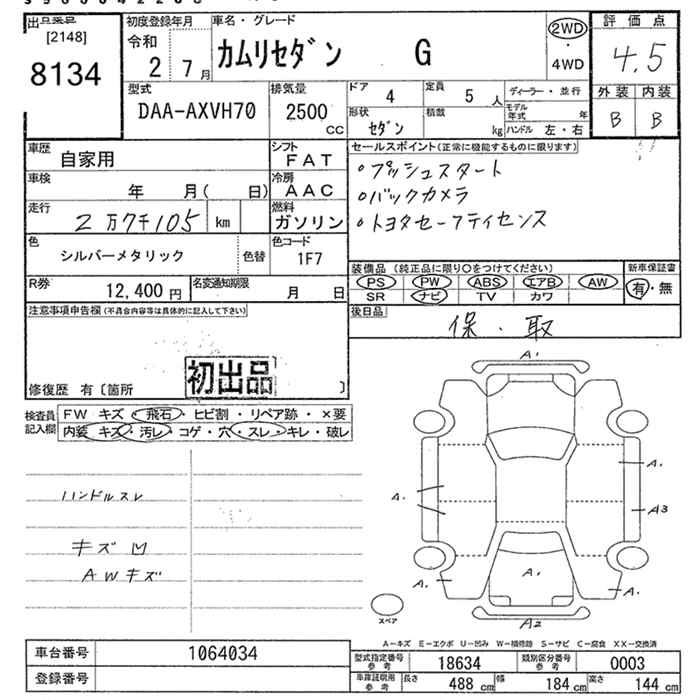 出品番号
[2148]
8134
初度登録年月
令和
2 7月
車名・グレード
カムリセダン G
2WD
・
4WD
評価点
4.5
外装 内装
B B
型式
DAA-AXVH70
排気量
2500
CC
ドア 4
定員 5 人
ディーラー・並行
形状 セダン
積載 kg
モデル年式 年
ハンドル 左・右
車歴 自家用
シフト
FAT
車検 年 月( 日)
冷房
AAC
走行 2万7千105 km
燃料
ガソリン
色 シルバーメタリック 色替
色コード
1F7
R券 12,400 円
名変通知期限 月 日
セールスポイント(正常に機能するものに限ります)
・プッシュスタート
・バックカメラ
・トヨタセーフティセンス
装備品 (純正品に限り〇をつけてください)
新車保証書
PS PW ABS エアB AW
有・無
SR ナビ TV カワ
後日品
保・取
注意事項申告欄(不具合内容等は具体的に記入して下さい)
初出品
修復歴 有〔箇所 〕
検査員
記入欄
FW キズ・飛石・ヒビ割・リペア跡・×要
内装 キズ・汚レ・コゲ・穴・スレ・キレ・破レ
ハンドルスレ
キズ 凹
AWキズ
A1
A1
A1
A3
A1
A1
A1
A2
スペア
A-キズ E-エクボ U-凹み W-補修跡 S-サビ C-腐食 XX-交換済
車台番号 1064034
登録番号
型式指定番号
参考
18634
類別区分番号
参考
0003
車庫証明用
参考
長さ 488 cm 幅 184 cm 高さ 144 cm